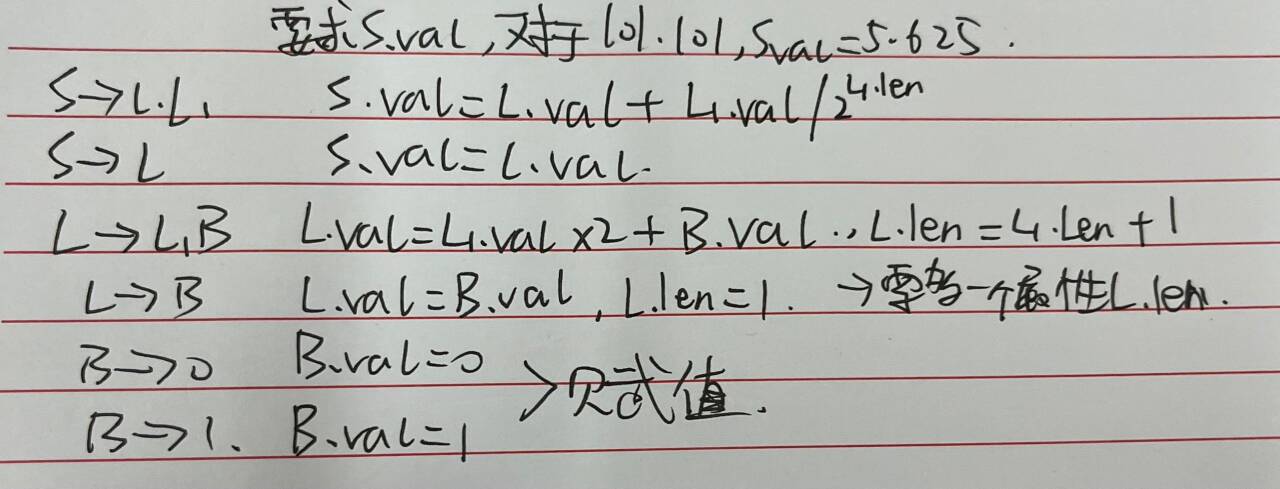 要求S.val,对于101.101,S.val=5.625.
S→L.L₁ S.val=L.val+L₁.val/2^L₁.len
S→L S.val=L.val.
L→L₁B L.val=L₁.val×2+B.val.,L.len=L₁.len+1
L→B L.val=B.val,L.len=1. →需加一个属性L.len.
B→0 B.val=0
>只赋值.
B→1. B.val=1